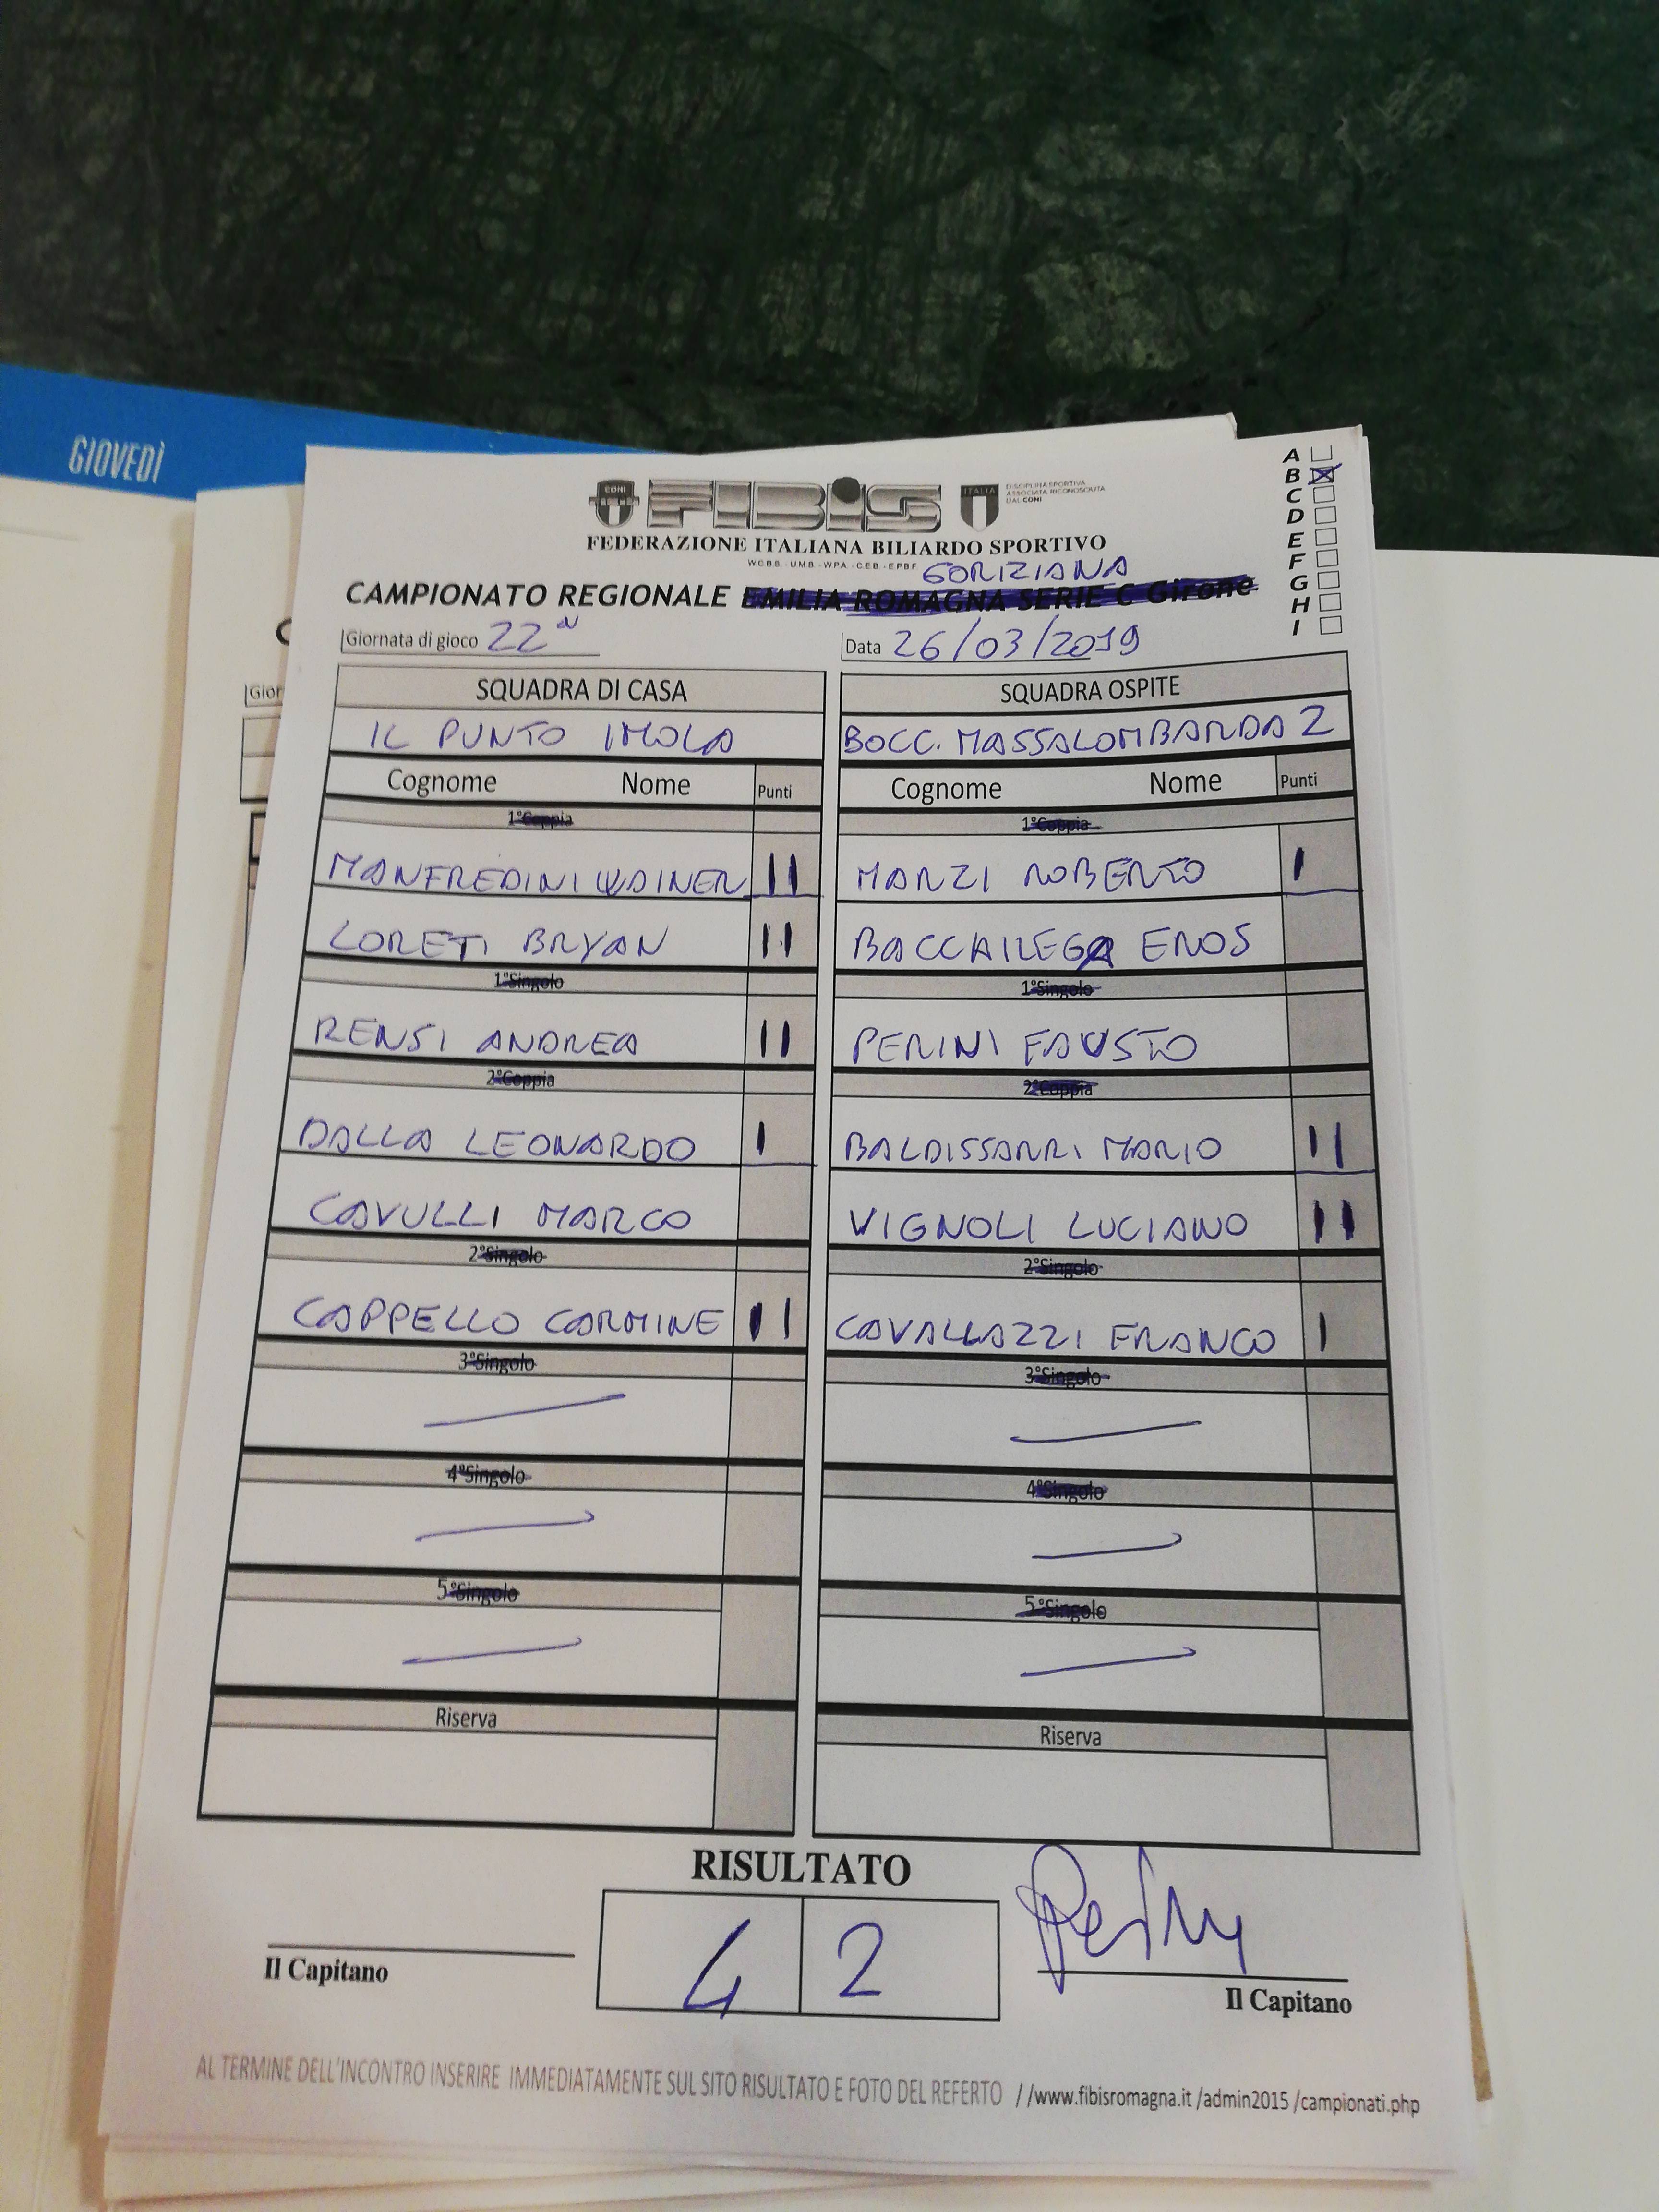 GIOVEDÌ
A
B
C
D
E
F
G
H
I
CONI
FIBiS
ITALIA
DISCIPLINA SPORTIVA
ASSOCIATA RICONOSCIUTA
DAL CONI
FEDERAZIONE ITALIANA BILIARDO SPORTIVO
W.C.B.S. - U.M.B. - W.P.A. - C.E.B. - E.P.B.F.
GORIZIANA
CAMPIONATO REGIONALE EMILIA ROMAGNA SERIE C Girone
Giornata di gioco 22ª Data 26/03/2019
SQUADRA DI CASA SQUADRA OSPITE
IL PUNTO IMOLA BOCC. MASSALOMBARDA 2
Cognome Nome Punti Cognome Nome Punti
1°Coppia 1°Coppia
MANFREDINI WAINER II MARZI ROBERTO I
LORETI BRYAN II BACCHILEGA EROS
1°Singolo 1°Singolo
RENSI ANDREA II PERINI FAUSTO
2°Coppia 2°Coppia
DALLA LEONARDO I BALDISSARRI MARIO II
CAVULLI MARCO VIGNOLI LUCIANO II
2°Singolo 2°Singolo
CAPPELLO CARMINE II CAVALLAZZI FRANCO I
3°Singolo 3°Singolo
4°Singolo 4°Singolo
5°Singolo 5°Singolo
Riserva Riserva
RISULTATO
4 2
Il Capitano Il Capitano
AL TERMINE DELL'INCONTRO INSERIRE IMMEDIATAMENTE SUL SITO RISULTATO E FOTO DEL REFERTO //www.fibisromagna.it /admin2015 /campionati.php